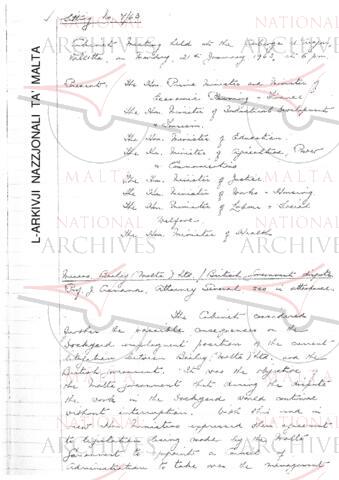 Sitting No. 7/63
Cabinet Meeting held at the Auberge d'Aragon,
Valletta, on Monday, 21st January 1963, at 6 p.m.
Present: The Hon. Prime Minister and Minister of
Economic Planning & Finance.
The Hon. Minister of Industrial Development
& Tourism
The Hon. Minister of Education.
The Hon. Minister of Agriculture, Power
& Communications
The Hon. Minister of Justice.
The Hon. Minister of Works & Housing
The Hon. Minister of Labour & Social
Welfare.
The Hon. Minister of Health
Messrs. Bailey (Malta) Ltd. / British Government dispute
Prof. J. Cremona, Attorney General, was in attendance.
The Cabinet considered
further the possible consequences on the
Dockyard employment position of the current
litigation between Bailey (Malta) Ltd. and the
British Government. It was the objective of
the Malta Government that during the dispute
the work in the Dockyard would continue
without interruption. With this end in
view the Ministers expressed their agreement
to legislation being made by the Malta
Government to appoint a Council of
Administration to take over the management
L-ARKIVJI NAZZJONALI TA' MALTA
NATIONAL
MALTA
ARCHIVES